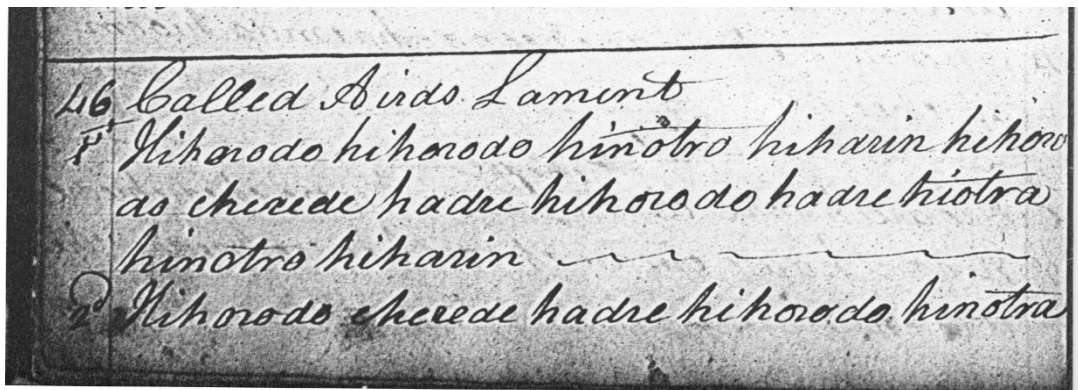 46 Called Airds Lament
1 Hihorodo hihorodo hinotro hiharin hihoro
do cherede hadre hihorodo hadre hiotra
hinotro hiharin
2 Hihorodo cherede hadre hihorodo hinotra